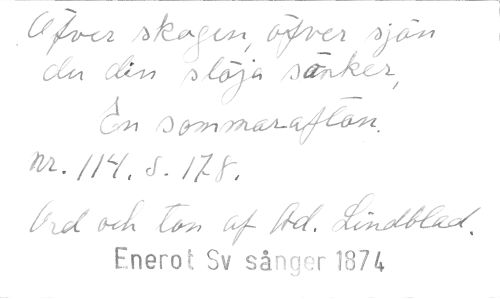 Öfver skogen, öfver sjön
du din slöja sänker,
En sommarafton.
nr. 114. s. 178.
Ord och ton af Ad. Lindblad.
Enerot Sv sånger 1874